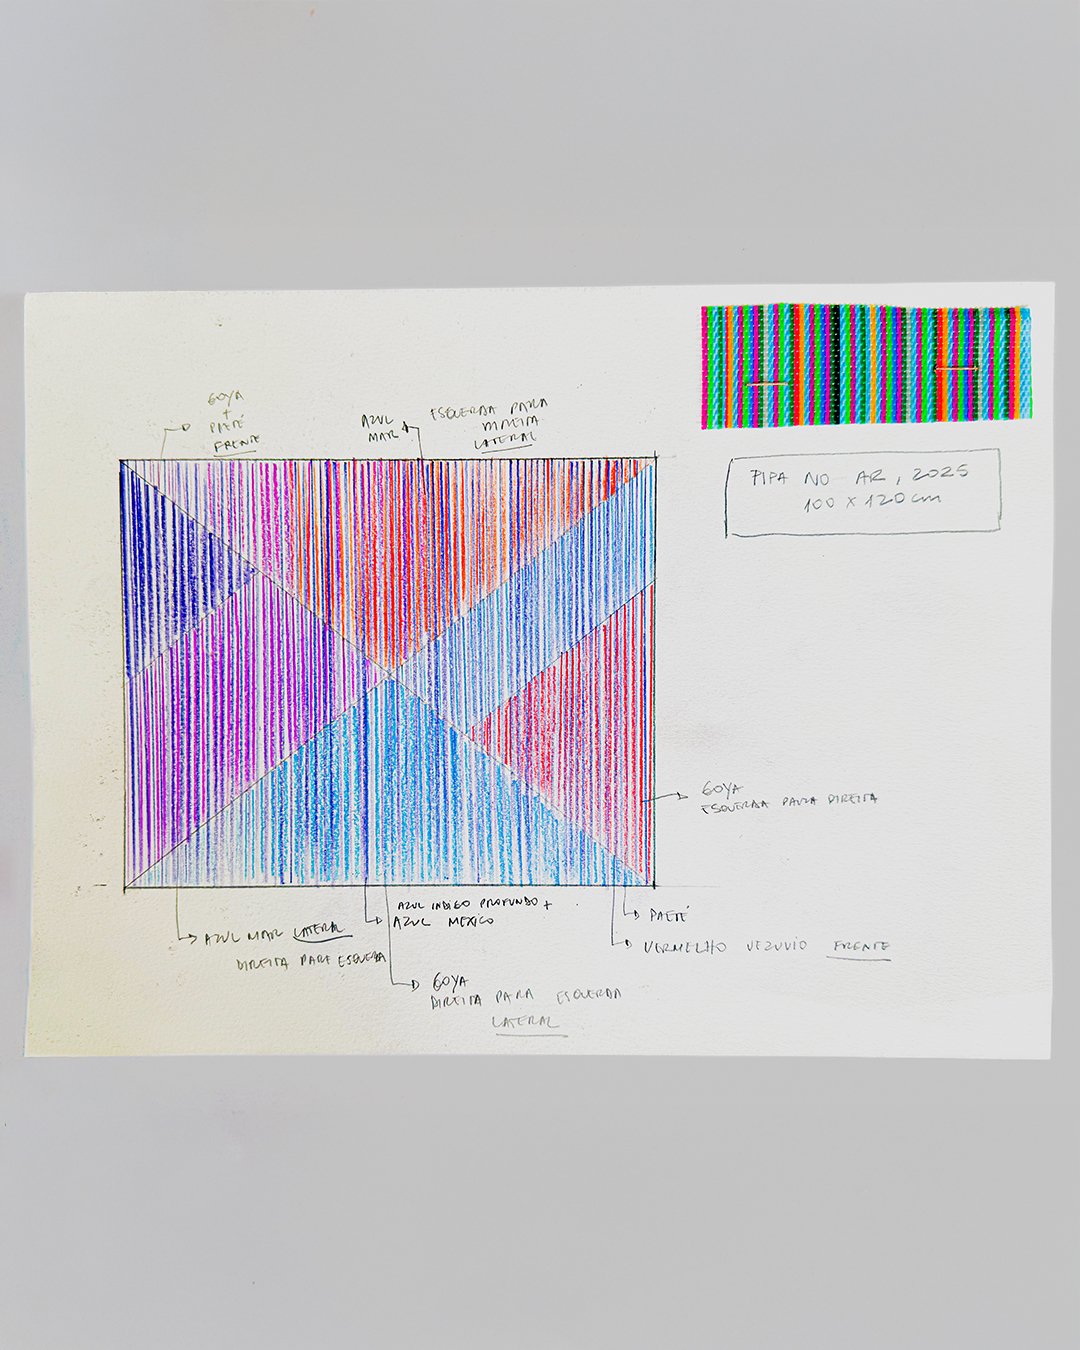 GOYA
+
PAETÉ
FRENTE
AZUL
MAR
ESQUERDA PARA
DIREITA
LATERAL
PIPA NO AR, 2025
100 x 120 cm
GOYA
ESQUERDA PARA DIREITA
AZUL MAR LATERAL
DIREITA PARA ESQUERDA
AZUL INDIGO PROFUNDO +
AZUL MEXICO
GOYA
DIREITA PARA ESQUERDA
LATERAL
PAETÉ
VERMELHO VEZUVIO FRENTE